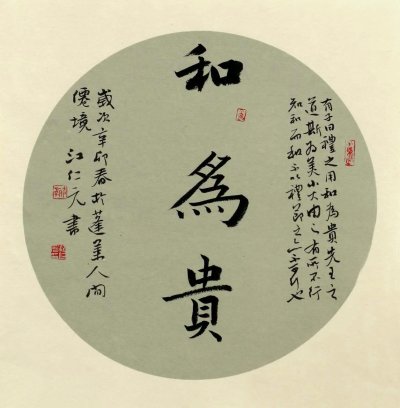 和為貴
有子曰禮之用和為貴先王之
道斯為美小大由之有所不行
知和而和不以禮節之亦不可行也
歲次辛卯春於蓬萊人間
僊境 江仁元書